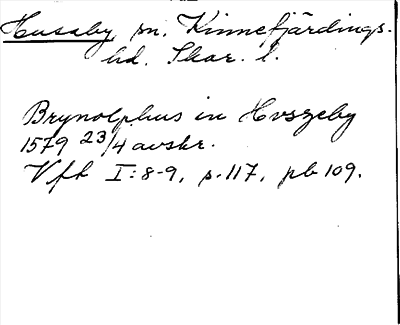 Husaby, sn. Kinnefjärdings.
hd. Skar. l.
Brynolphus in Hvszeby
1579 23/4 avskr.
Vfk I:8-9, s. 117, pb 109.